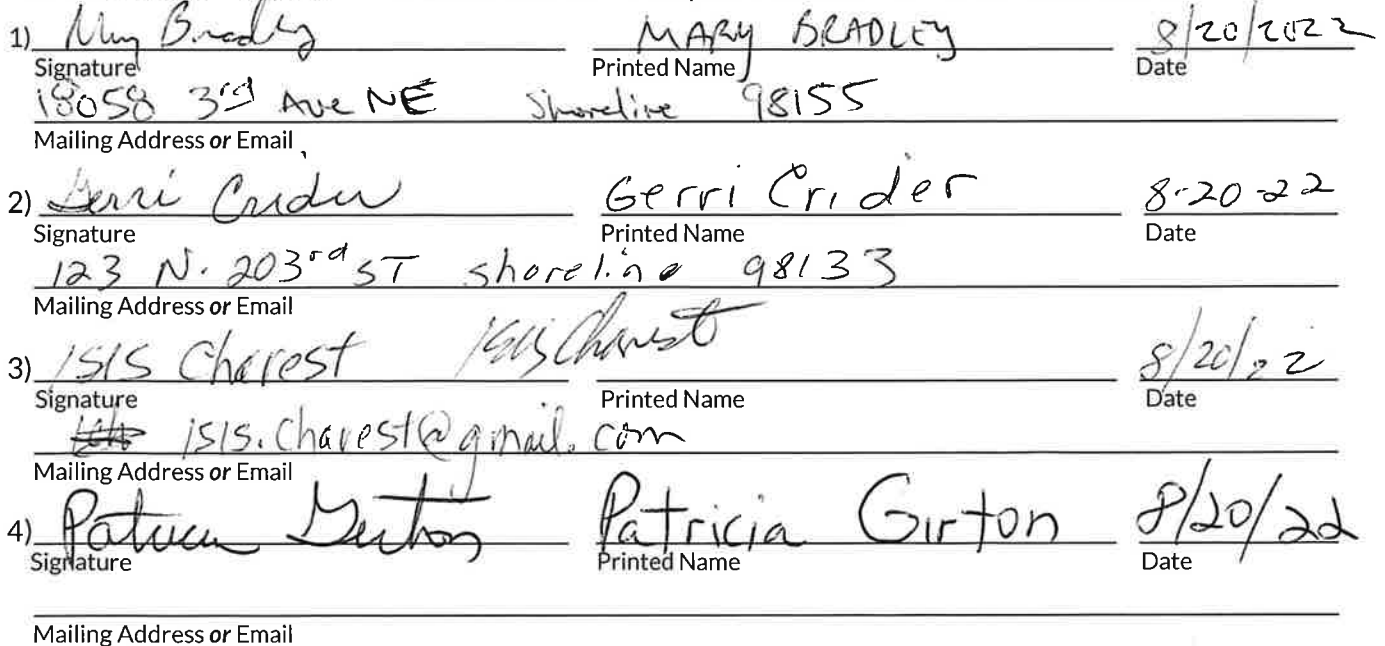 1) Mary Bradley MARY BRADLEY 8/20/2022
Signature Printed Name Date
18058 3rd Ave NE Shoreline 98155
Mailing Address or Email
2) Gerri Crider Gerri Crider 8-20-22
Signature Printed Name Date
123 N. 203rd ST shoreline 98133
Mailing Address or Email
3) ISIS Charest Isis Charest 8/20/22
Signature Printed Name Date
isis.charest@gmail.com
Mailing Address or Email
4) Patricia Girton Patricia Girton 8/20/22
Signature Printed Name Date
Mailing Address or Email